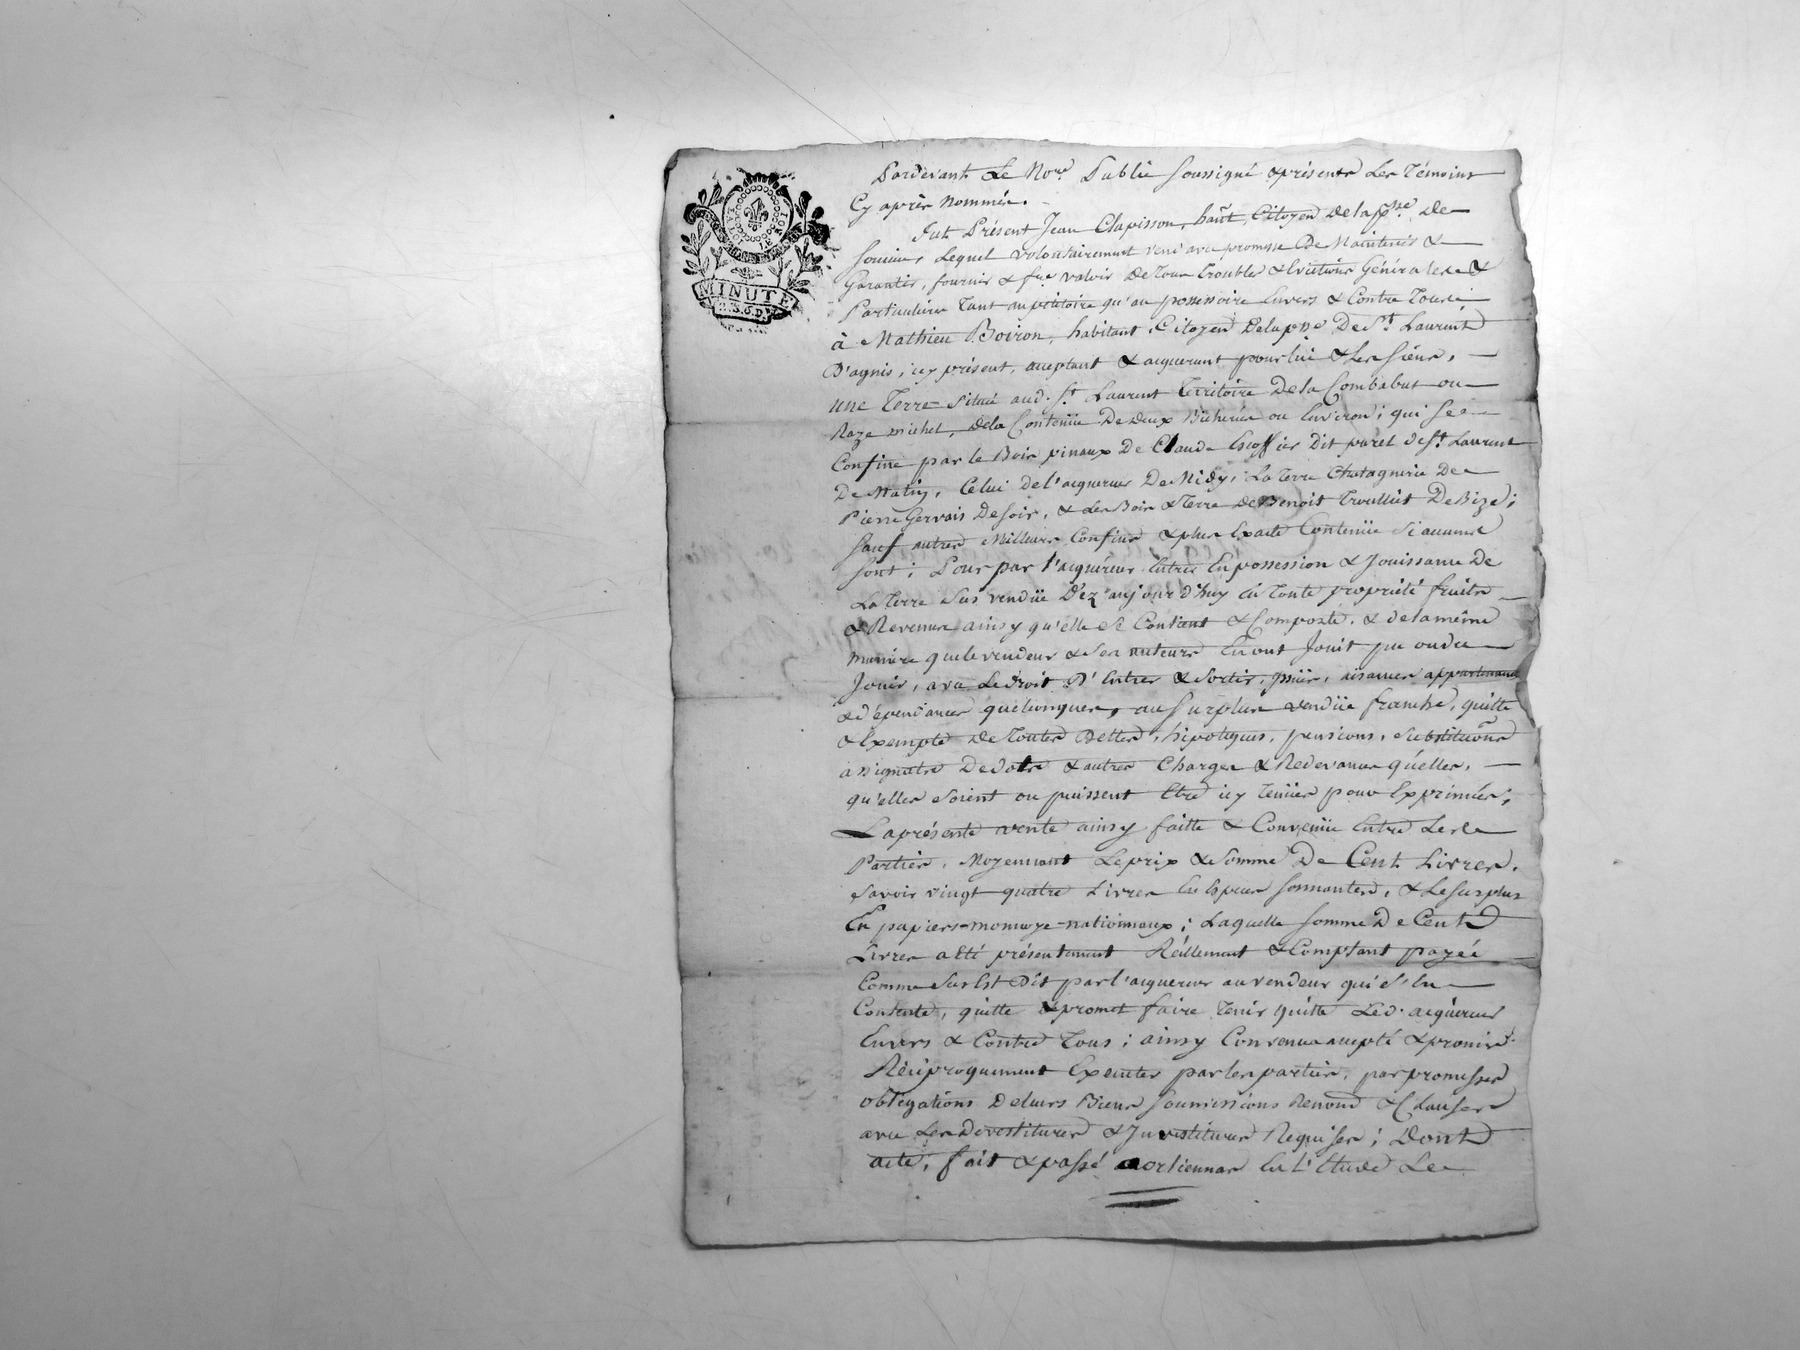 LA LOI LE ROI
MINUTE
2. S. 6. D.
Pardevant Le No.re Public Soussigné & présents Les Témoins
Cy après Nommés.
Fut Présent Jean Clapisson, hãnt, Citoyen De la p.sse De
Soucieu, Lequel volontairement vend avec promesse De Maintenir &
Garantir, fournir & f.re valoir De Tous Troubles & Evictions Générales &
Particuliers Tant au pétitoire qu'au possessoire Envers & Contre Tous
à Mathieu Boiron, habitant, Citoyen De la p.sse De S.t Laurent
D'agnis, icy présent, acceptant & acquerant pour lui & Les Siens,
une Terre Située aud. S.t Laurent Territoire De la Combabut ou
Raze michel, De la Contenüe De Deux Bicherées ou Environ; qui Se
Confine par le Bois pinaux De Claude Escoffier Dit paret De S.t Laurent
De Matin, Celui De l'acquereur De Midy, La Terre Chatagneriée De
Pierre Gervais De Soir, & Les Bois & Terre De Benoit Trouillet De Bize;
Sauf autres Meilleurs Confins & plus Exacte Contenüe Si aucuns
Sont; Pour par l'acquéreur Entrer En possession & Jouissance De
La Terre Sus vendüe D'ez aujourd'huy En Toute propriété fruits
& Revenus ainsy qu'elle Se Contient & Comporte, & De la même
manière que le vendeur & Ses auteurs En ont Jouit pu ou du
Jouir, avec Le Droit D'Entrer & Sortir, puiser, aisances appartenances
& dépendances quelconques, au Surplus vendüe franche, quitte
& Exempte De Toutes Dettes, hipoteques, pensions, Substituõns
assignats De Dots & autres Charges & Redevances quelles,
qu'elles Soient ou puissent Etre icy Tenües pour Exprimées;
La présente vente ainsy faitte & Convenüe Entre Les
Parties, Moyennant Le prix & Somme De Cent Livres,
Savoir vingt quatre Livres En Espèces Sonnantes, & Le Surplus
En papiers-monnoye-nationnaux; Laquelle Somme De Cent
Livres a Eté présentement Réellement & Comptant payée
Comme Sus Est Dit par l'acquereur au vendeur qui S'en
Contente, quitte & promet faire Tenir quitte Led. acquereur
Envers & Contre Tous; ainsy Convenu accepté & promis
Réciproquement Exécuter par les parties, par promesses
obligations De leurs Biens Soumissions Renonc.s & Clauses
avec Les Devestitures & Investitures Requises; Dont
acte, fait & passé à orliennas En L'Etude Le